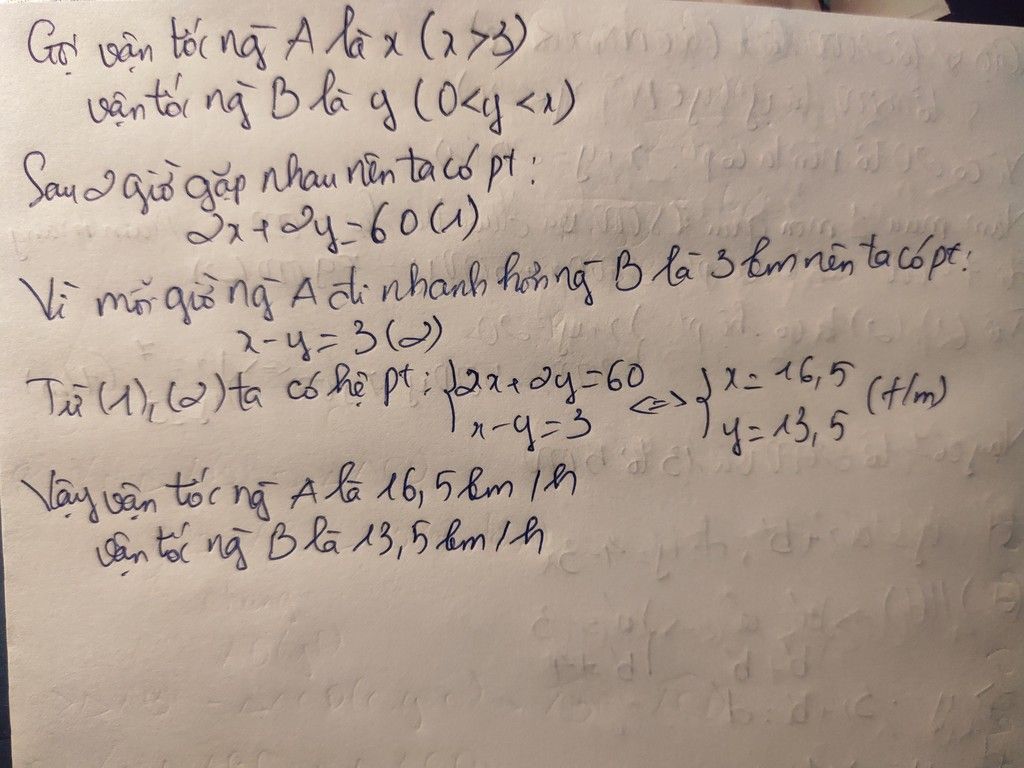 Gọi vận tốc ng̀ A là x (x>3)
vận tốc ng̀ B là y (0<y<x)
Sau 2 giờ gặp nhau nên ta có pt:
2x+2y=60(1)
Vì mỗi giờ ng̀ A đi nhanh hơn ng̀ B là 3 km nên ta có pt:
x-y=3(2)
Từ (1),(2) ta có hệ pt: { 2x+2y=60 <=> { x=16,5 (t/m)
x-y=3 y=13,5
Vậy vận tốc ng̀ A là 16,5km/h
vận tốc ng̀ B là 13,5km/h